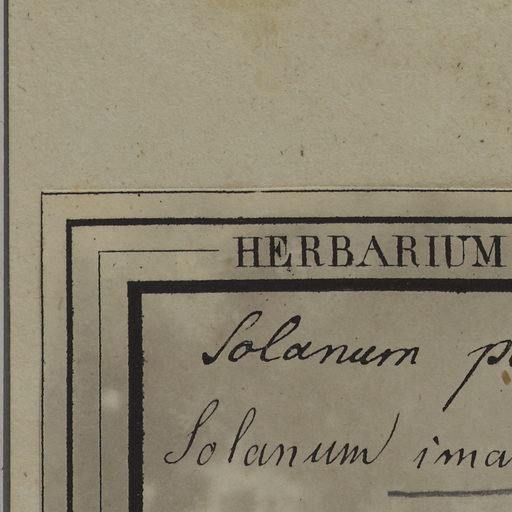 HERBARIUM
Solanum p
Solanum ima